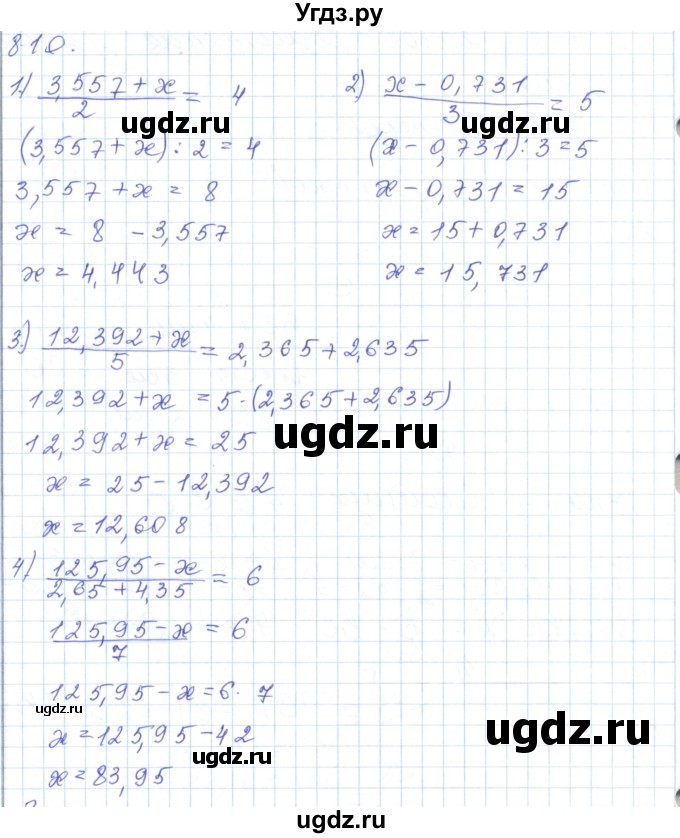 Угдз.ру
810.
1) (3,557 + x)/2 = 4
(3,557 + x) : 2 = 4
3,557 + x = 8
x = 8 - 3,557
x = 4,443
2) (x - 0,731)/3 = 5
(x - 0,731) : 3 = 5
x - 0,731 = 15
x = 15 + 0,731
x = 15,731
3.) (12,392 + x)/5 = 2,365 + 2,635
12,392 + x = 5 · (2,365 + 2,635)
12,392 + x = 25
x = 25 - 12,392
x = 12,608
4) (125,95 - x)/(2,65 + 4,35) = 6
(125,95 - x)/7 = 6
125,95 - x = 6 · 7
x = 125,95 - 42
x = 83,95
ugdz.ru
ugdz.ru
ugdz.ru
ugdz.ru
ugdz.ru
ugdz.ru
ugdz.ru
ugdz.ru